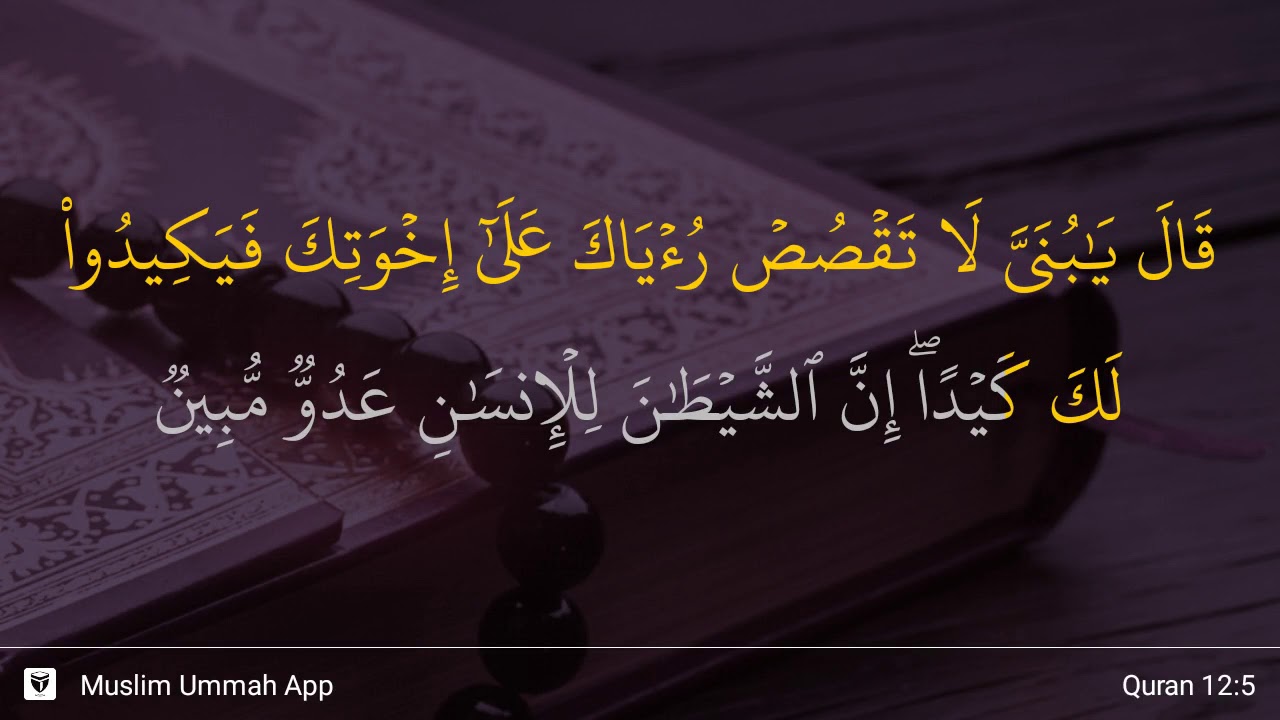 قَالَ يَـٰبُنَىَّ لَا تَقْصُصْ رُءْيَاكَ عَلَىٰٓ إِخْوَتِكَ فَيَكِيدُوا۟
لَكَ كَيْدًا ۖ إِنَّ ٱلشَّيْطَـٰنَ لِلْإِنسَـٰنِ عَدُوٌّ مُّبِينٌ
Muslim Ummah App
Quran 12:5